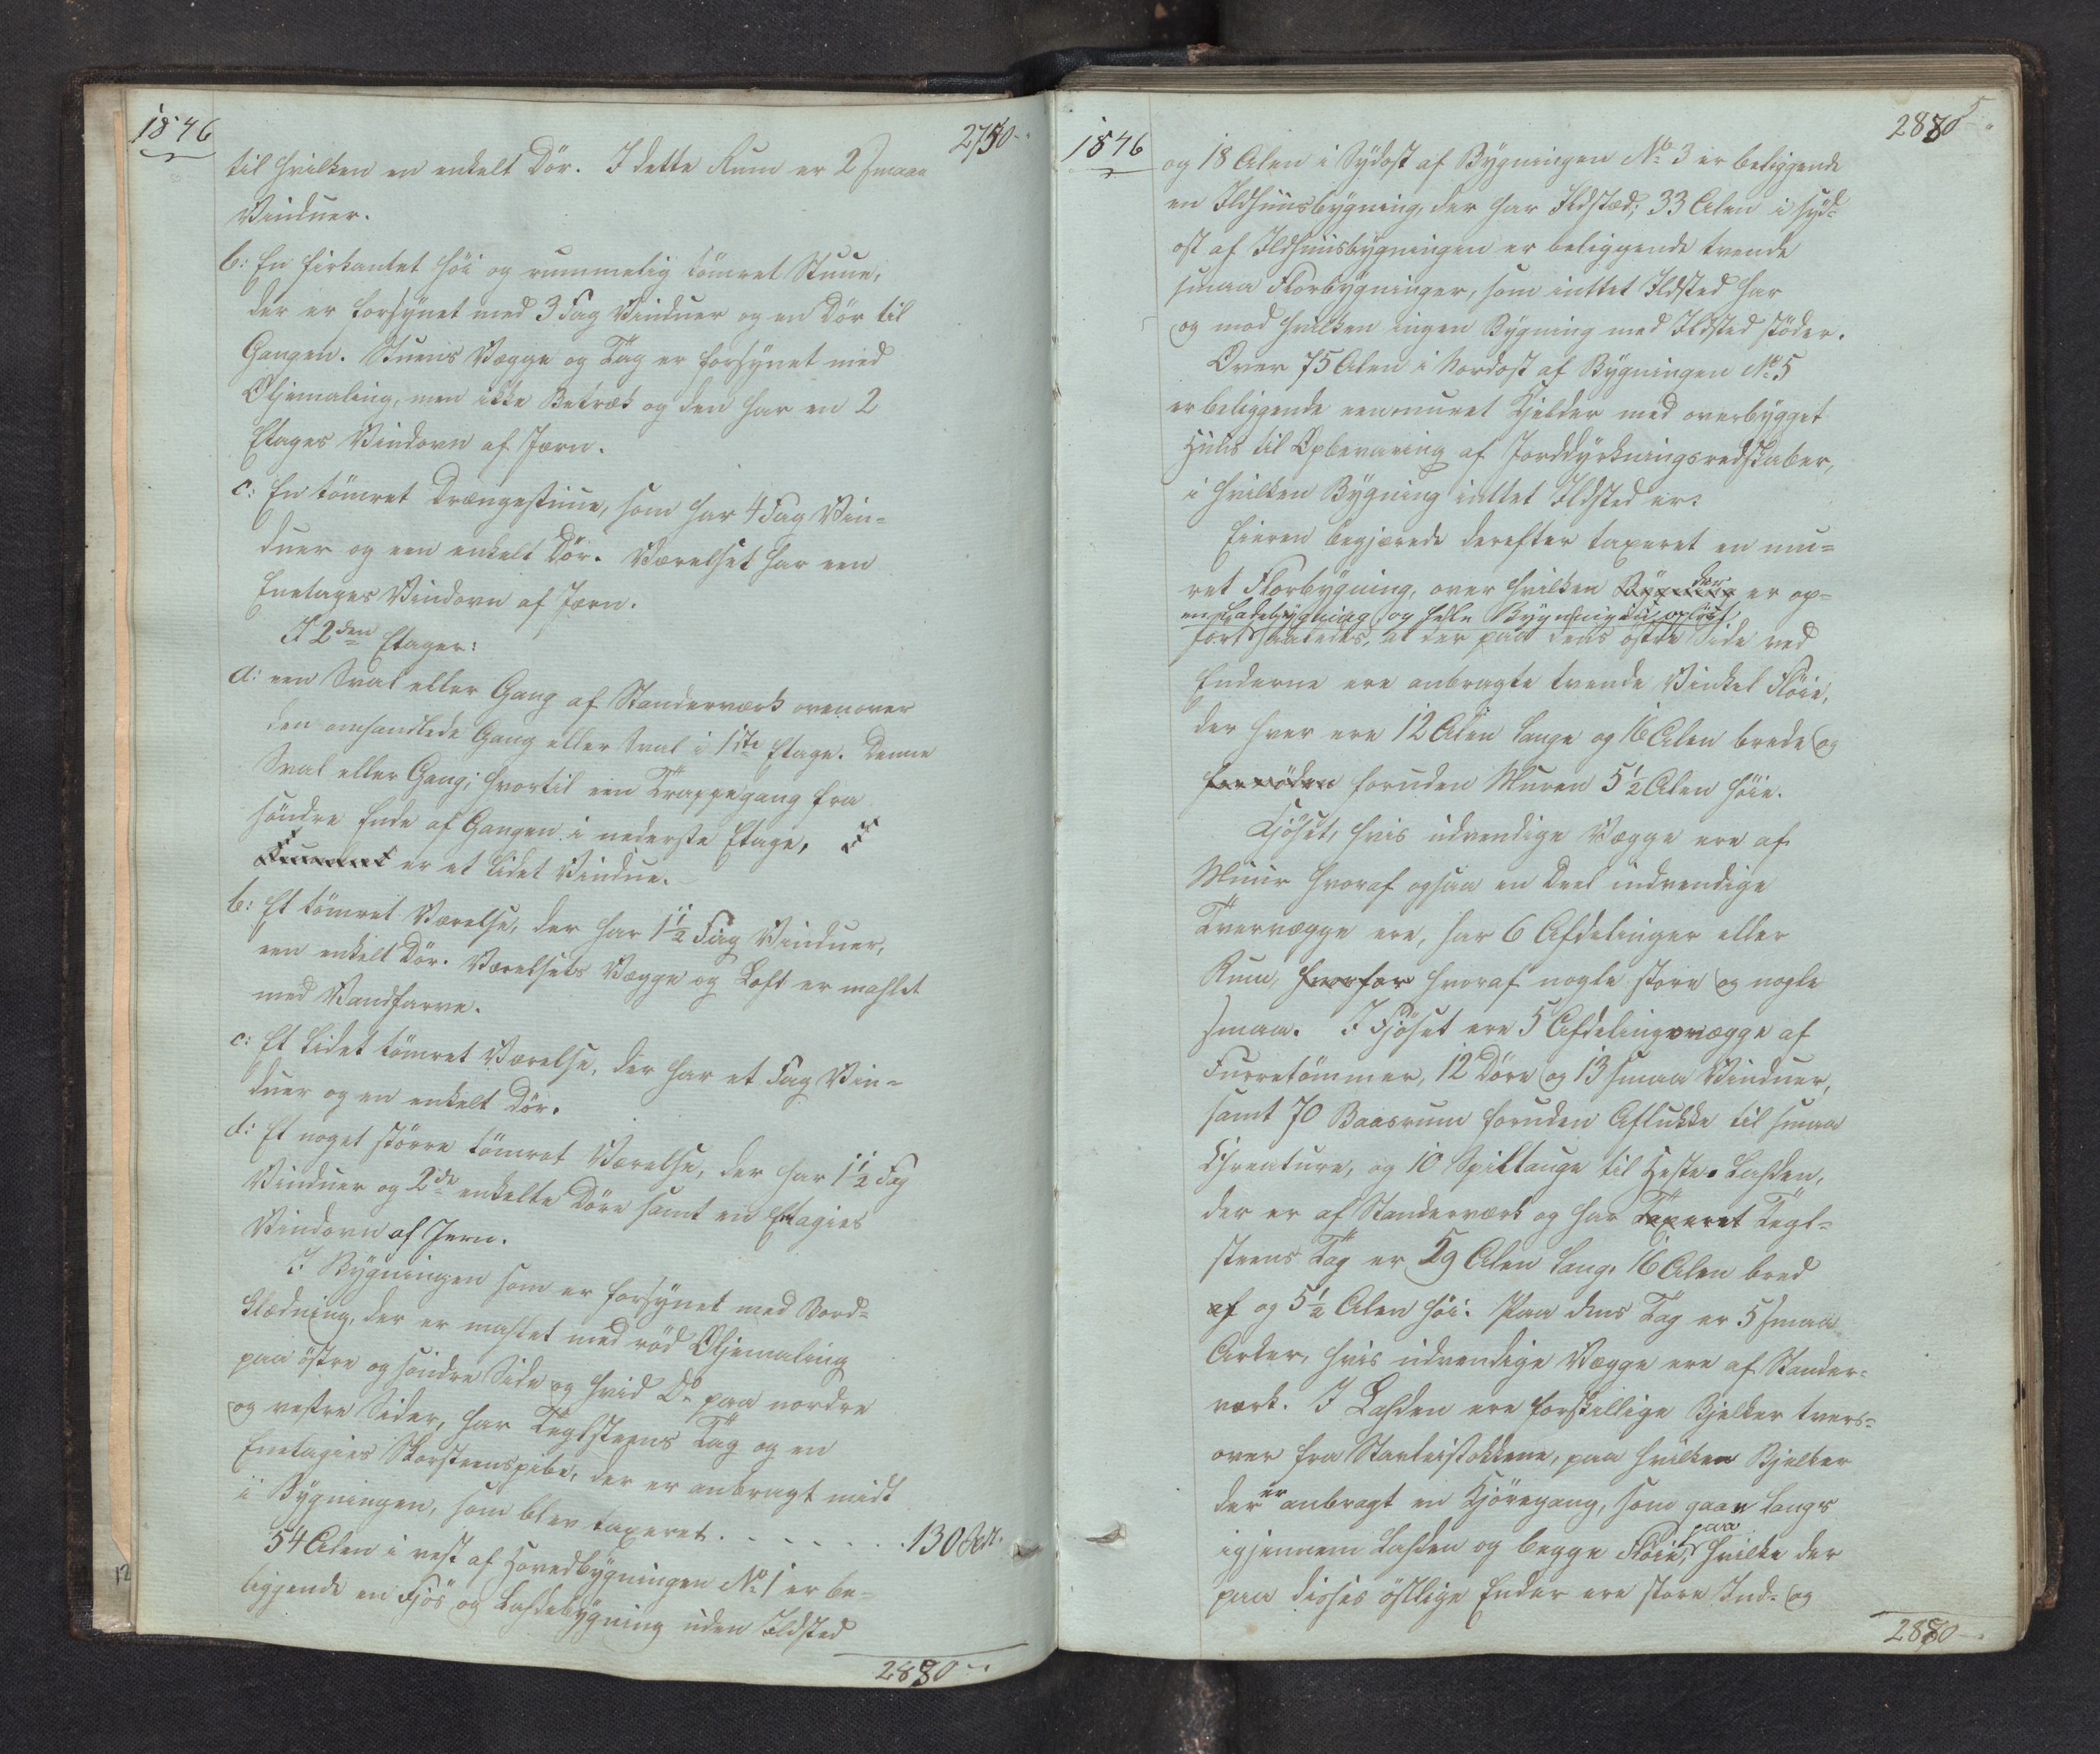 1846
2750 -
til hvilken en enkelt Dör. I dette Rum er 2 smaae
Vinduer.
b: En firkantet höi og rummelig tömret Stuue,
der er forsynet med 3 Fag Vinduer og en Dör til
Gangen. Stuens Vægge og Tag er forsynet med
Oljemaling, men ikke Betræk og den har en 2
Etages Vindovn af Jern.
c: En tömret Drængestuue, som har 4 Fag Vin=
duer og een enkelt Dör. Værelset har een
Enetages Vindovn af Jern.
I 2den Etage:
a: een Sval eller Gang af Standerværk ovenover
den omhandlede Gang eller Sval i 1ste Etage. Denne
Sval eller Gang; hvortil een Trappegang fra
söndre Ende af Gangen i nederste Etage,
er et lidet Vindue.
b: Et tömret Værelse, der har 1 1/2 Fag Vinduer,
een enkelt Dör. Værelsets Vægge og Loft er mahlet
med Vandfarve.
c: Et lidet tömret Værelse, der har et Fag Vin=
duer og en enkelt Dör.
d: Et noget större tömret Værelse, der har 1 1/2 Fag
Vinduer og 2de enkelte Döre samt en Etagies
Vindovn af Jern.
Bygningen som er forsynet med Bord=
klædning, der er mahlet med röd Oljemaling
paa östre og söndre Side og hvid Do paa nordre
og vestre Sider, har Teglsteens Tag og en
Enetagies Skorsteenspibe, der er anbragt midt
i Bygningen, som blev taxeret . - - - - - . 130 Sdl.
54 Alen i vest af Hovedbygningen No 1 er be=
liggende en Fjös og Ladebygning uden Ildsted
2880 -
12
1846
2880
5
og 18 Alen i Sydost af Bygningen No 3 er beliggende
en Ildhuusbygning, der har Ildsted; 33 Alen i syd=
ost af Ildhuusbygningen er beliggende trende
smaa Florbygninger, som inttet Ildsted har
og mod hvilken ingen Bygning med Ildsted stöder.
Over 75 Alen i Nordost af Bygningen No 5
er beliggende een muret Kjelder med overbygget
Huus til Opbevaring af Jorddyrkningsredskaber,
i hvilken Bygning inttet Ildsted er.
Eieren begjærede derefter taxeret en mu=
ret Florbygning, over hvilken Bygning der er op=
en Ladebygning og hele Bygningen
fört saaledes, at der paa dens östre Side ved
Enderne ere anbragte tvende Vinkel Flöie,
der hver ere 12 Alen lange og 16 Alen brede og
foruden Muren 5 1/2 Alen höie.
Fjöset, hvis udvendige Vægge ere af
Muur hvoraf ogsaa en Deel indvendige
Tvervægge ere, har 6 Afdelinger eller
Rum, hvorfor hvoraf nogle store og nogle
smaa. I Fjöset ere 5 Afdelingsvægge af
Furretömmer, 12 Döre og 13 smaa Vinduer,
samt 70 Baasrum foruden Aflukke til smaa
Chreature, og 10 Spiltauge til Heste. Laden,
der er af Standerværk og har Taxeret Tegl=
steens Tag er 59 Alen lang, 16 Alen bred
af og 5 1/2 Alen höi. Paa dens Tag er 5 smaa
Arker, hvis udvendige Vægge ere af Stander=
værk. I Laden ere forskillige Bjelker tvers=
over fra Stavleistokkene, paa hvilken Bjelker
der er anbragt en Kjöregang, som gaaer langs
igjennem Laden og begge Flöie, paa hvilke der
paa disses östlige Ender ere store Ind- og
2880 -